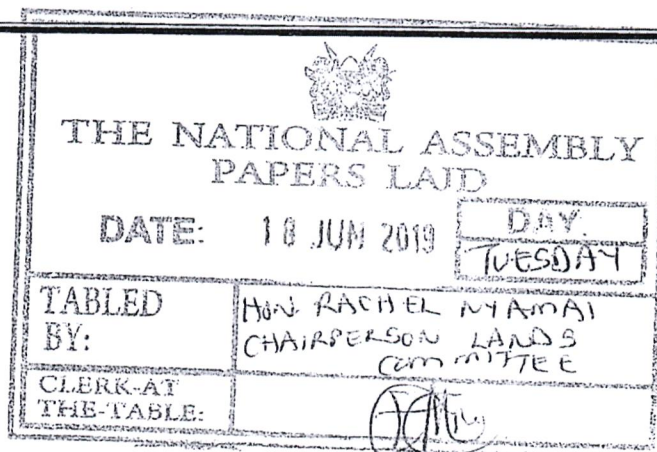 THE NATIONAL ASSEMBLY
PAPERS LAID
DATE: 18 JUN 2019
DAY.
TUESDAY
TABLED BY:
HON. RACHEL NYAMAI
CHAIRPERSON LANDS
COMMITTEE
CLERK-AT
THE-TABLE: